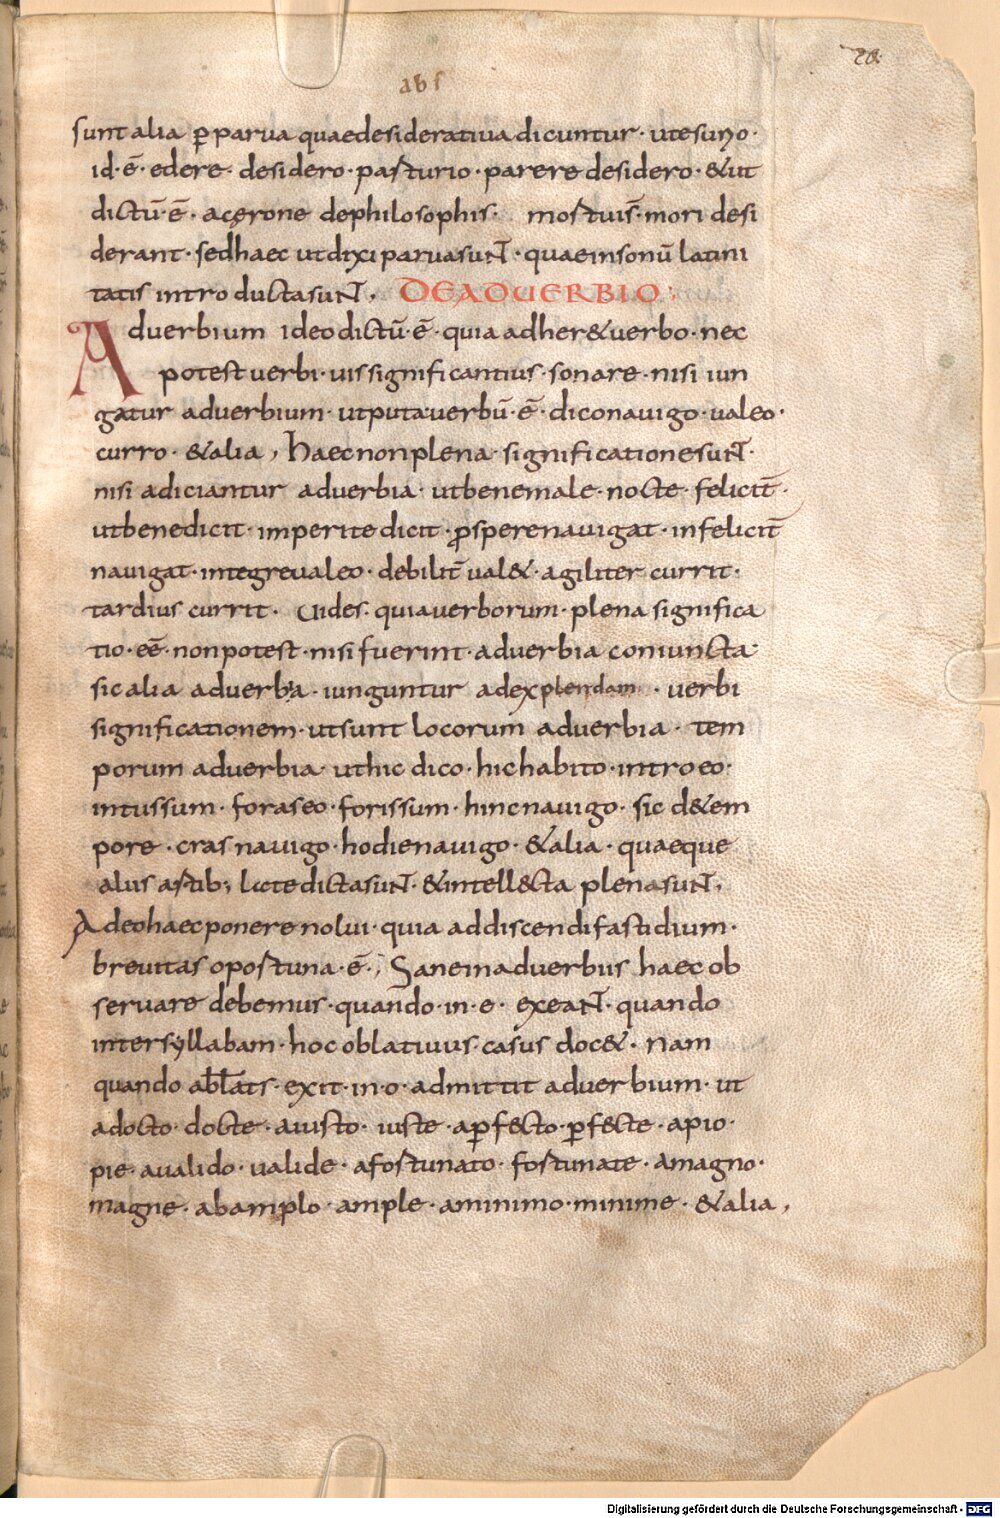 28.
abs
sunt alia ꝑ parva quaedesiderativa dicuntur· utesurio·
id·ē· edere· desidero· pasturio· parere desidero· &ut
dictū·ē· acęrone dephilosophis· mosturis̄· mori desi
derant· sedhaec utdixi parvasunt· quaeinsonū latini
tatis intro ductasunt, DEADVERBIO;
Adverbium ideodictū·ē· quia adher& verbo· nec
potest verbi· vis significantius· sonare· nisi iun
gatur adverbium· utputa verbū·ē· dico navigo· valeo·
curro· &alia, haec non plena· significatione sunt·
nisi adiciantur adverbia· utbenemale· nocte· felicit̄·
utbenedicit· imperitedicit· ꝓsperenavigat· infelicit̄
navigat· integrevaleo· debilit̄ val&· agiliter currit·
tardius currit· Vides· quiaverborum· plena significa
tio· eē· nonpotest· nisifuerint· adverbia coniuncta·
sicalia adverbia· iunguntur adexplendam· verbi
significationem· utsunt locorum adverbia· tem
porum adverbia· uthic dico· hichabito· introeo·
intussum· foraseo· forissum· hincnavigo· sic d&em
pore· crasnavigo· hodienavigo· &alia· quaeque
aliis astib; licte dictasunt· &intell&cta plenasunt,
Adeohaecponere nolui· quia addiscendifastidium·
brevitas oportuna·ē·; Saneinadverbiis haec ob
servare debemus· quando·in·e· exeant· quando
intersyllabam· hocoblativus· casus doc&· nam
quando abl̄atis· exit·in·o· admittit adverbium· ut
adocto· docte· aiusto· iuste· aꝑf&cto· ꝑf&cte· apio·
pie· avalido· valide· afortunato· fortunate· amagno·
magne· abamplo· ample· aminimo· minime· &alia,
Digitalisierung gefördert durch die Deutsche Forschungsgemeinschaft - DFG